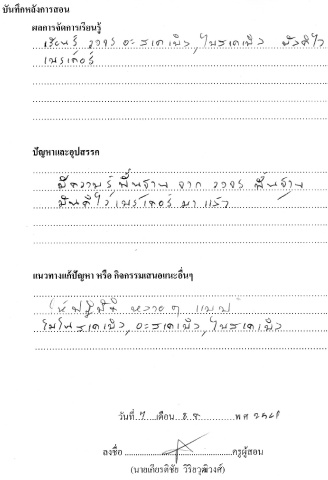 บันทึกหลังการสอน
ผลการจัดการเรียนรู้
เรียนรู้ วงจร อะสเตเบิล, ไบสเตเบิล มัลติไว
เบรเตอร์
ปัญหาและอุปสรรค
มีความรู้ พื้นฐาน จาก วงจร พื้นฐาน
มัลติไวเบรเตอร์ มา แล้ว
แนวทางแก้ปัญหา หรือ กิจกรรมเสนอแนะอื่นๆ
ให้ปฏิบัติ หลาย ๆ แบบ
โมโนสเตเบิล, อะสเตเบิล, ไบสเตเบิล
วันที่ 7 เดือน พ.ศ.
ลงชื่อ ครูผู้สอน
(นายเกียรติชัย วิริยวุฒิวงศ์)